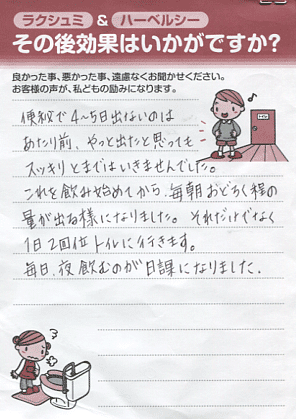 ラクシュミ & ハーベルシー
その後効果はいかがですか?
良かった事、悪かった事、遠慮なくお聞かせください。
お客様の声が、私どもの励みになります。
便秘で4~5日出ないのは
あたり前、やっと出たと思っても
スッキリとまではいきませんでした。
これを飲み始めてから、毎朝おどろく程の
量が出る様になりました。それだけでなく
1日2回位トイレに行きます。
毎日、夜飲むのが日課になりました。